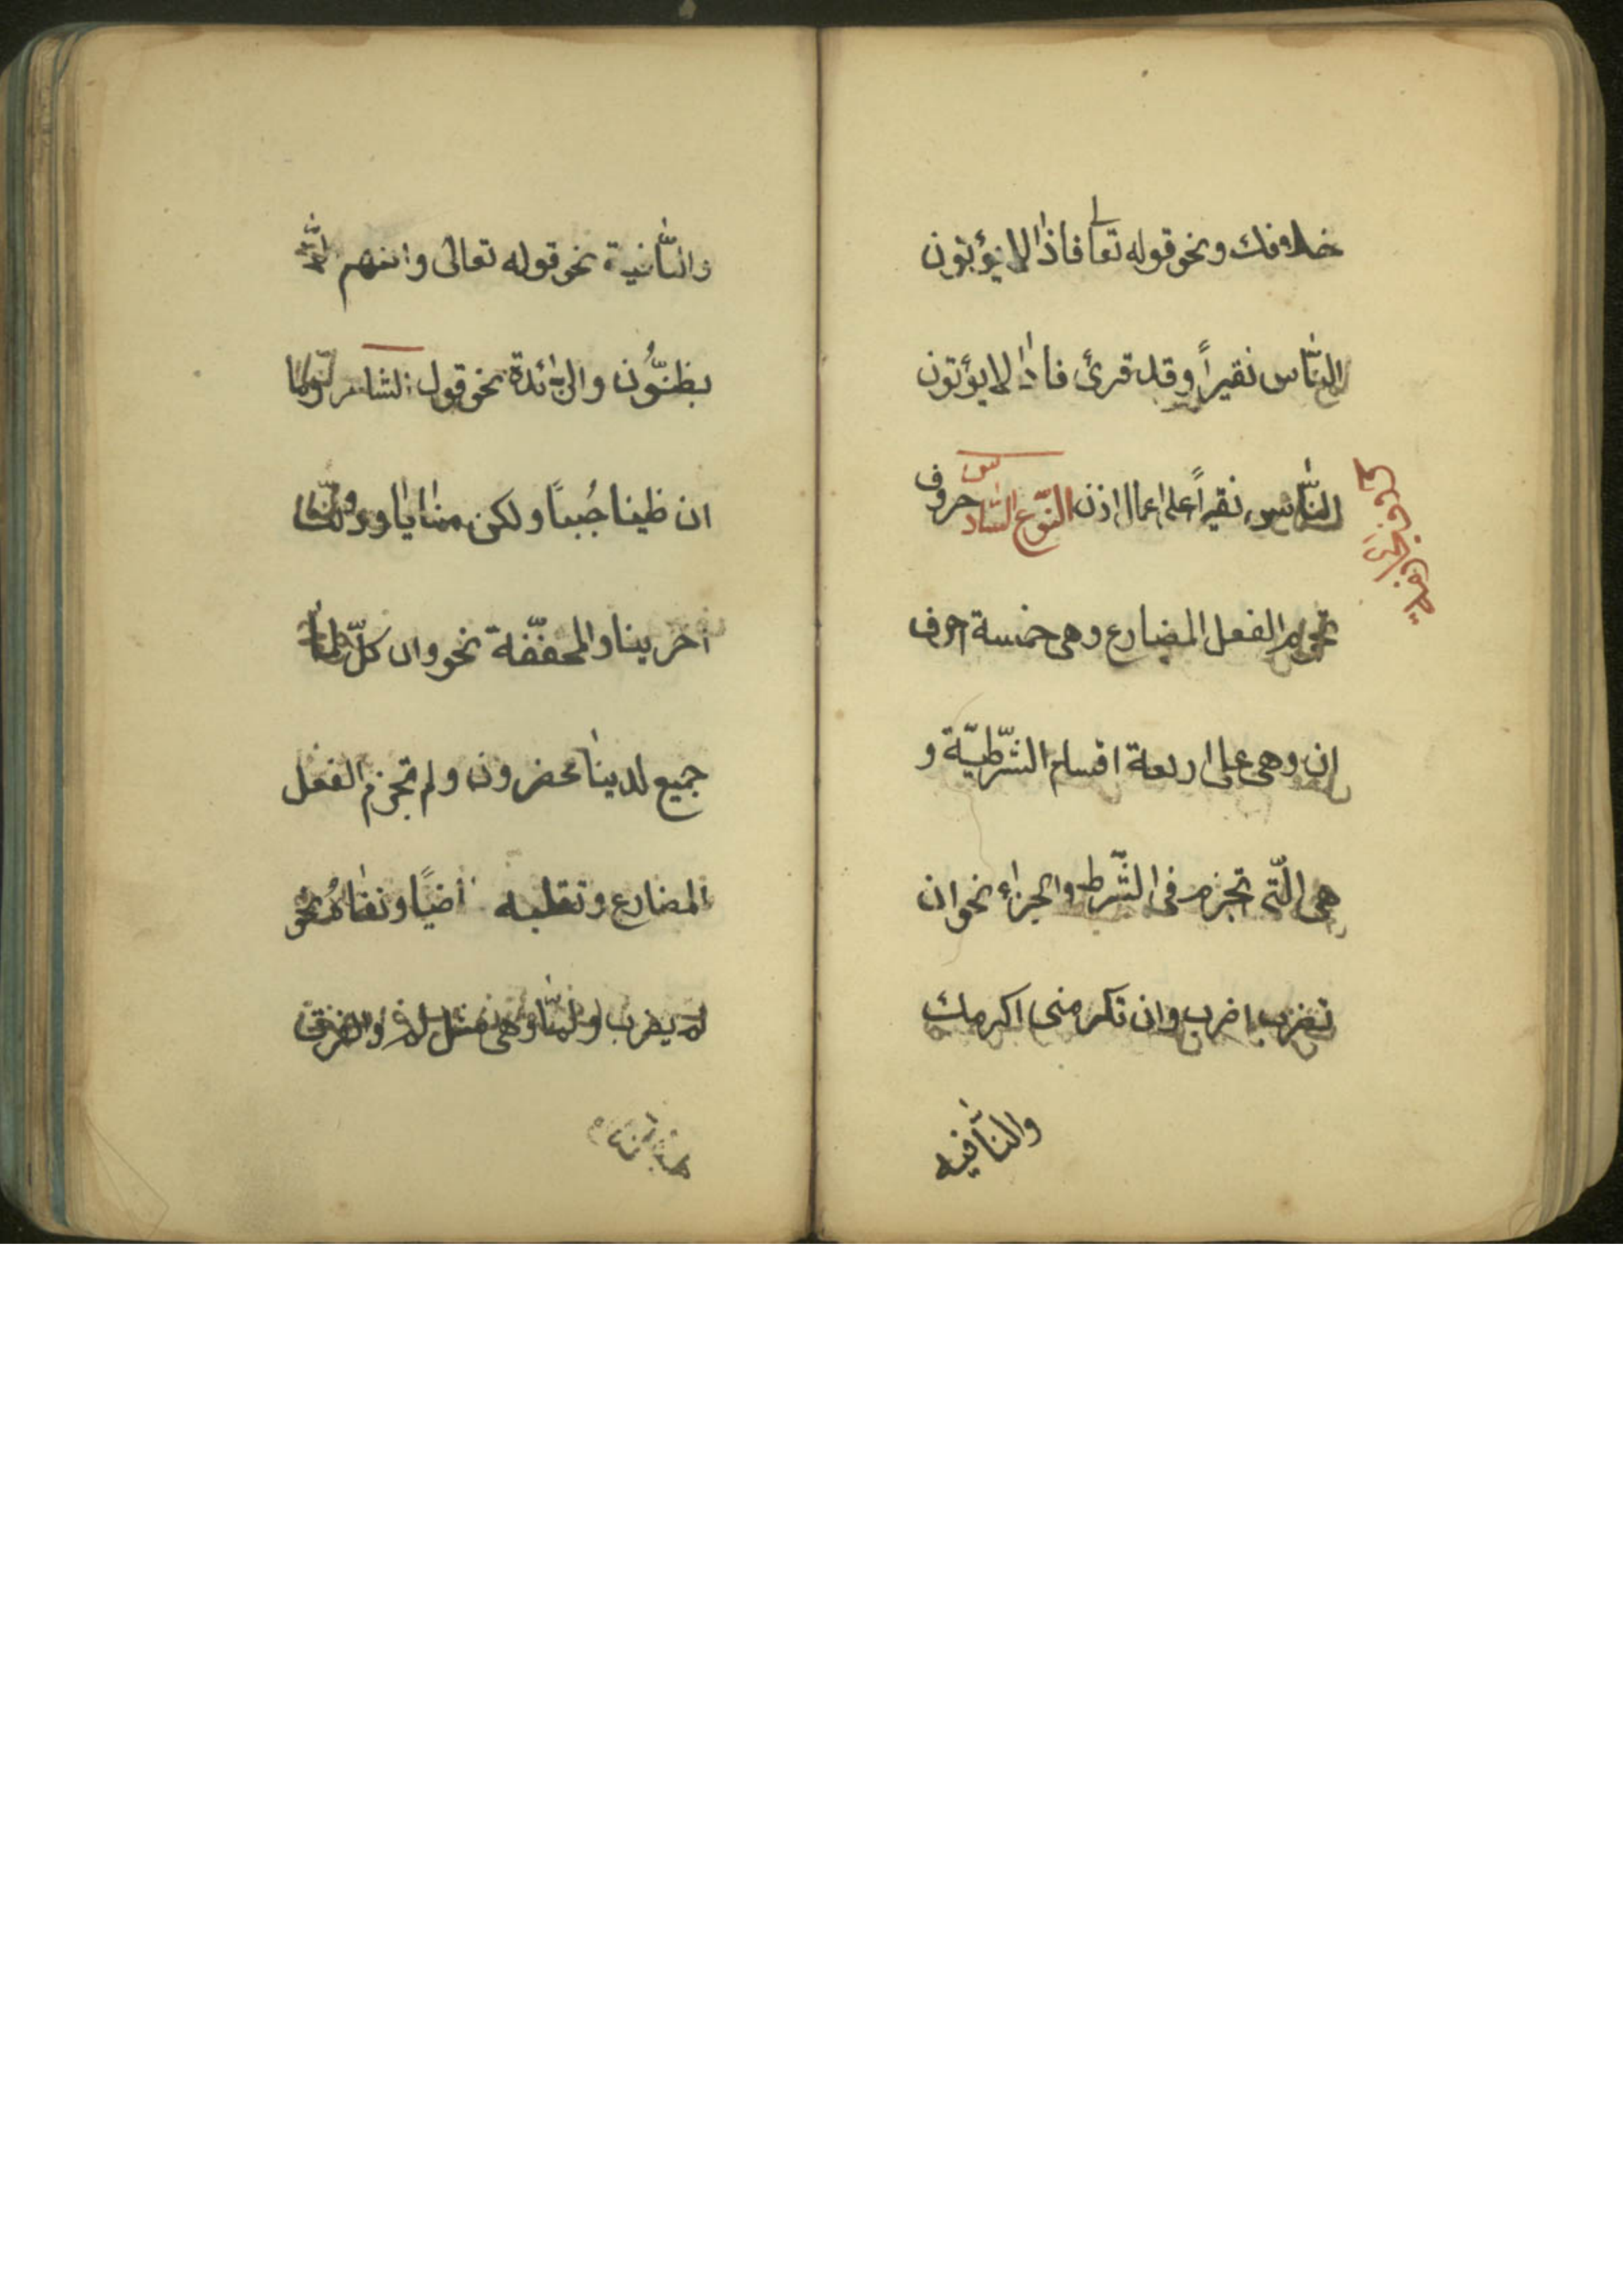 خلافك ونحو قوله تعا فاذا لا يؤتون
النّاس نقيراً وقد قرئ فاذا لا يؤتون
النّاس نقيراً على اعمال اذن النّوع السّادس حروف
تجزم الفعل المضارع وهى خمسة احرف
ان وهى على اربعة اقسام الشّرطيّة و
هى الّتى تجزم فى الشّرط والجزاء نحو ان
تضرب اضرب وان تكرمنى اكرمك
والنّافيه
والنّافية نحو قوله تعالى وان هم الّا
يظنّون والزّائدة نحو قول الشاعر وما
ان طبنا جُبناً ولكن منايانا ودولة
آخرينا والمخفّفة نحو وان كلّ لمّا
جميع لدينا محضرون ولم تجزم الفعل
المضارع وتقلبه ماضيًا ونفاهُ نحو
لم يضرب ولمّا وهى مثل لم والفرق